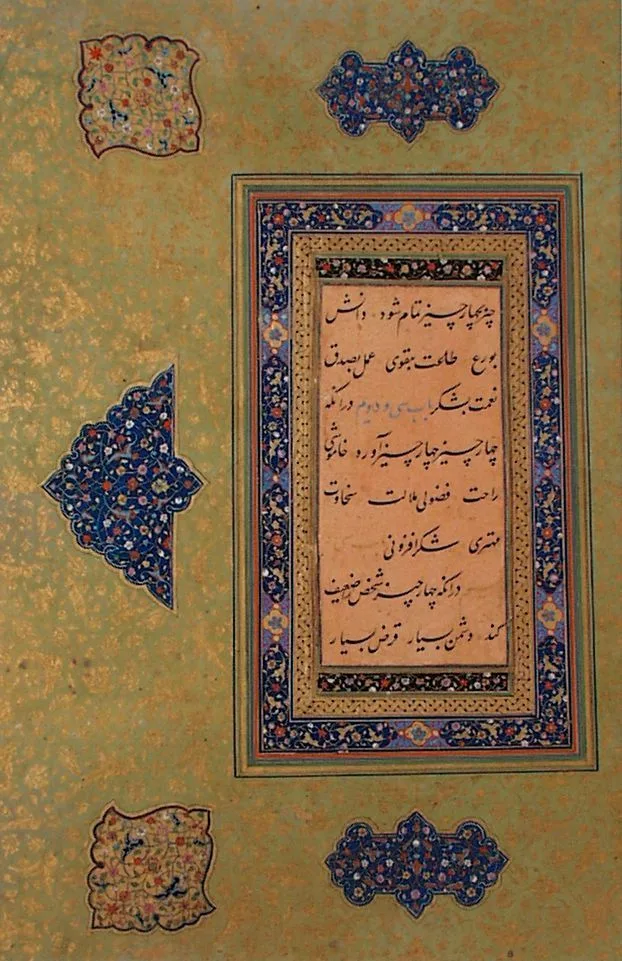 چیز بچهار چیز تمام شود دانش
بورع طاعت بتقوی عمل بصدق
نعمت بشکر باب سی و دوم درانکه
چهار چیز چهار چیز آورد خاموشی
راحت فضولی ملالت سخاوت
مهتری شکر افزونی
درانکه چهار چیز شخص را ضعیف
کند دشمن بسیار قرض بسیار